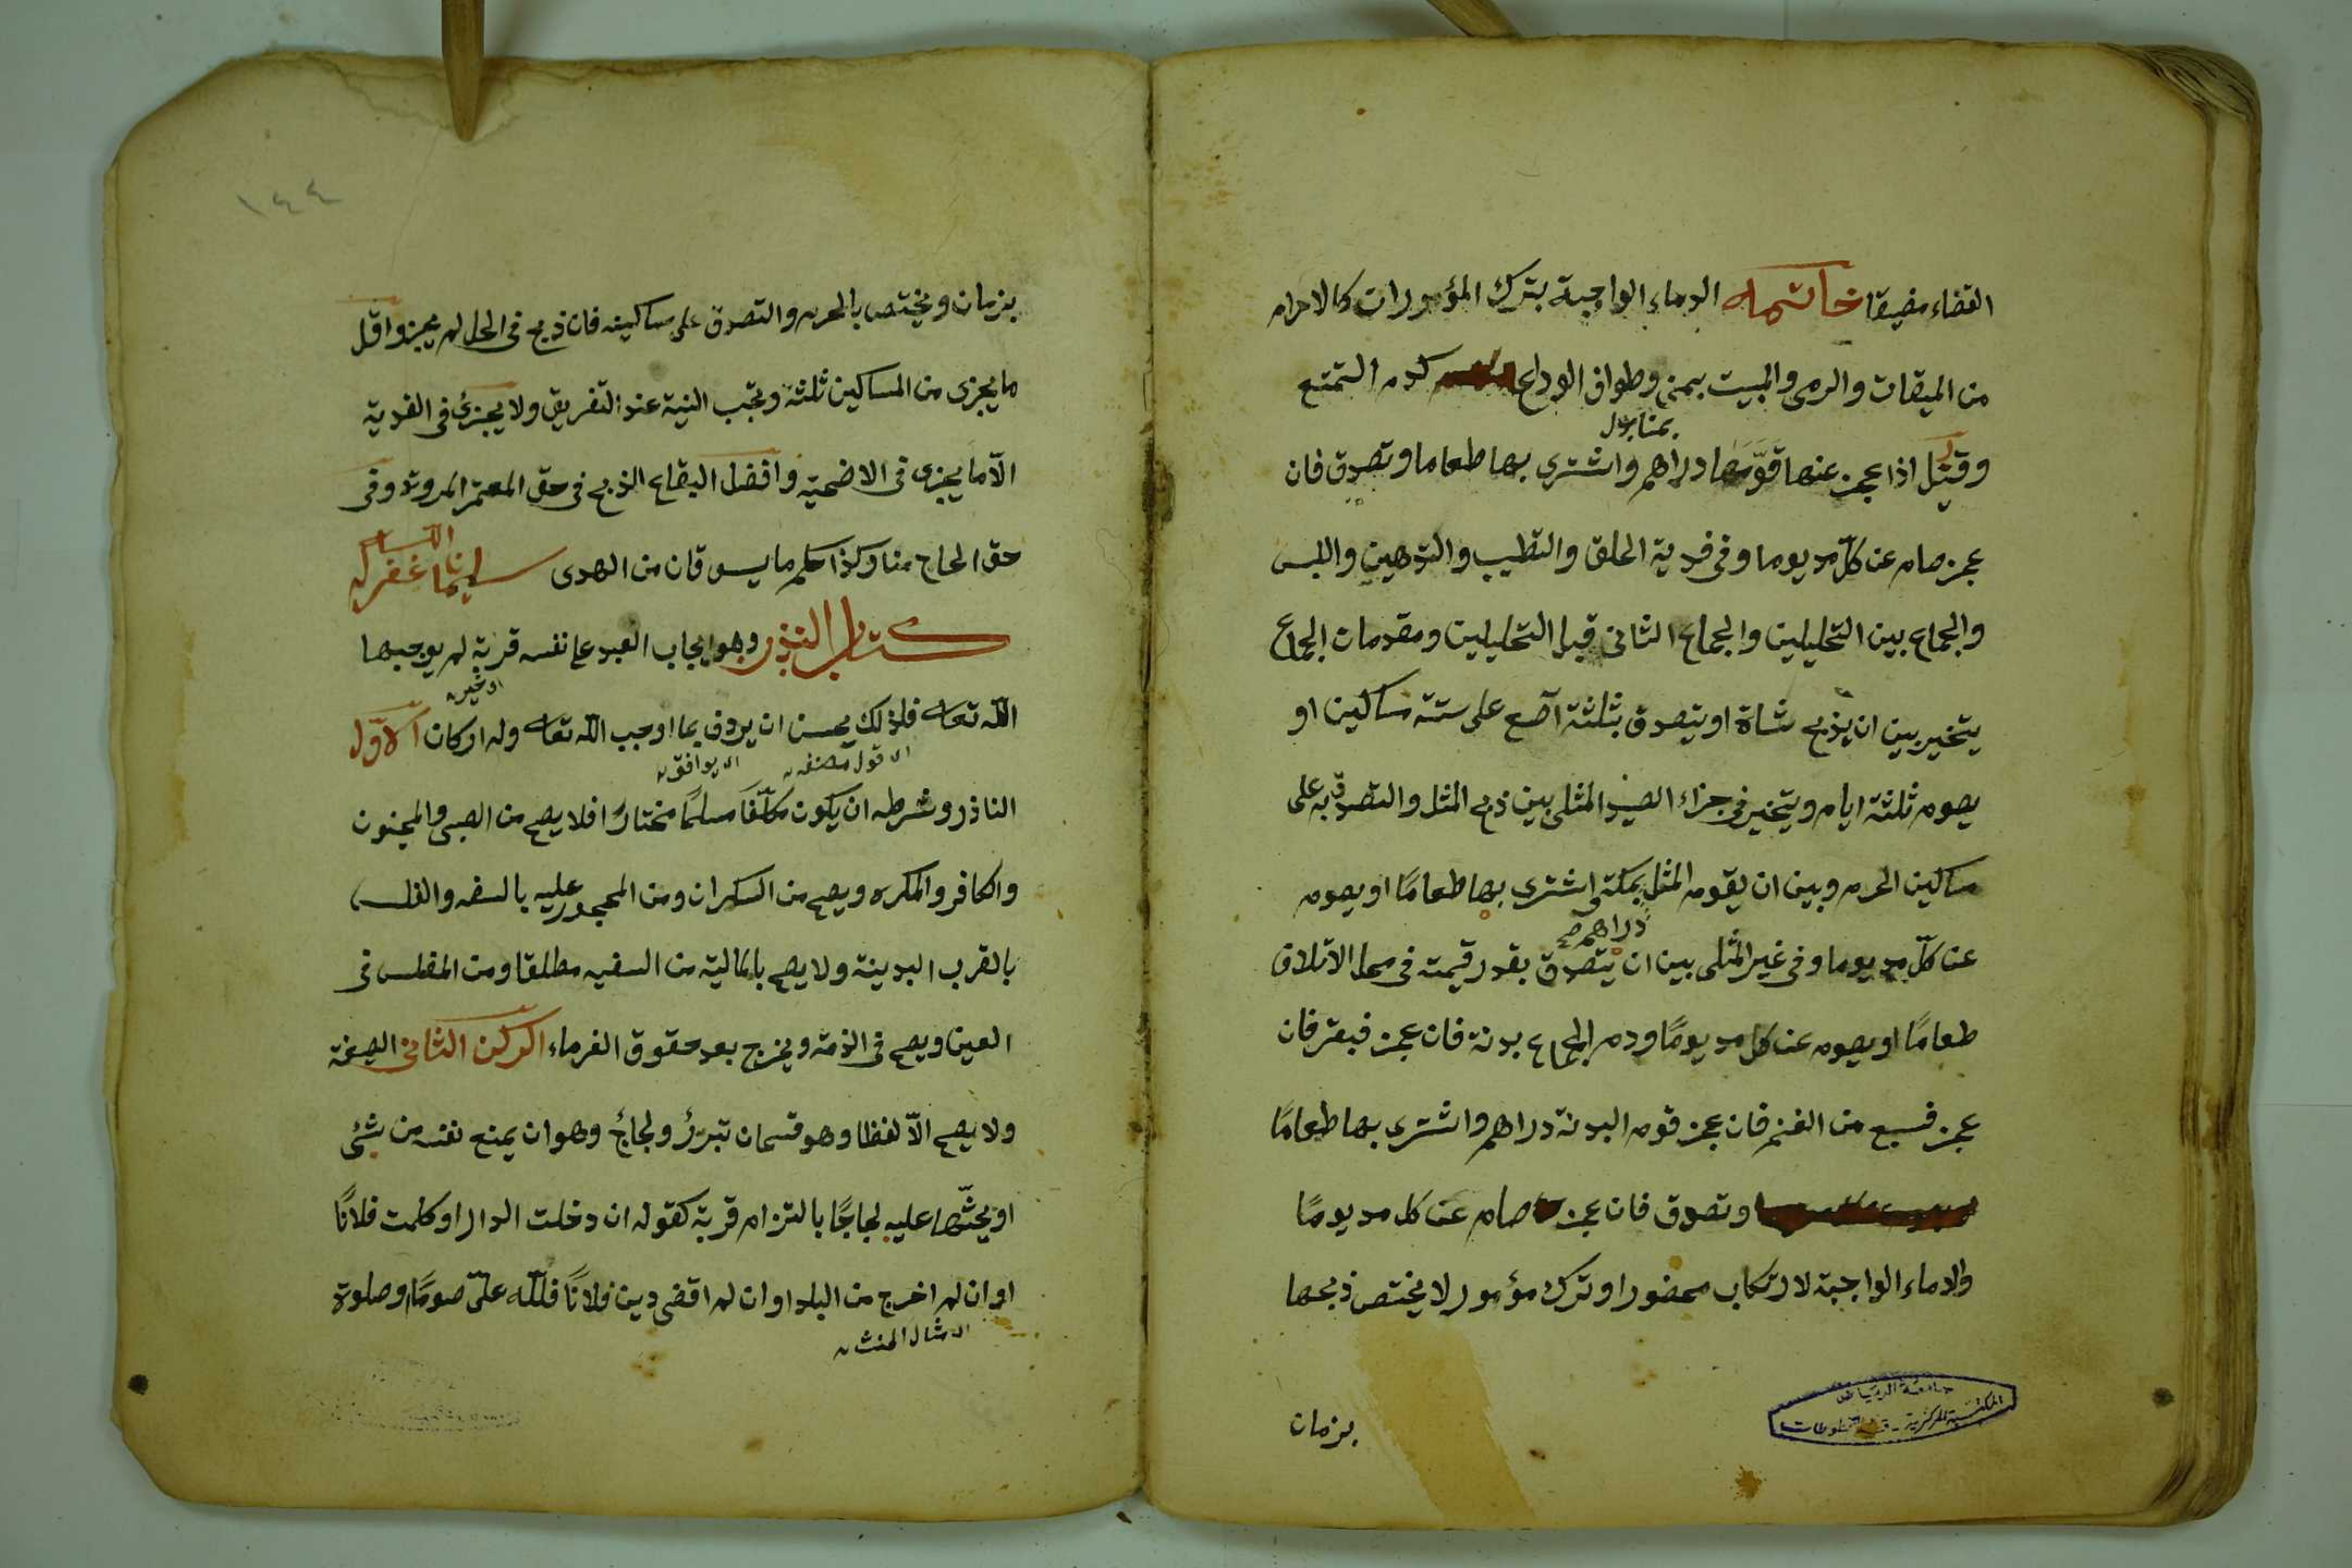 القضاء مضيقا خاتمه الدماء الواجبة بترك المؤمورات كالاحرام
من الميقات والرمى والمبيت بمنى وطواف الوداع كدم التمتع
وقيل اذا عجز عنها قوّمها دراهم واشترى بها طعاما وتصدق فان
عجز صام عن كلّ مد يوما وفى فدية الحلق والتطيب والتدهين واللبس
والجماع بين التحليلين والجماع الثانى قبل التحليلين ومقدمات الجماع
يتخير بين ان يذبح شاة او يتصدق بثلثة آصع على ستة مساكين او
يصوم ثلثة ايام ويتخير فى جزاء الصيد المثلى بين ذبح المثل والتصدق به على
مساكين الحرم وبين ان يقوم المثل بمكة واشترى بها طعامًا او يصوم
دراهم صح
عن كلّ مد يوما وفى غير المثلى بين ان يتصدق بقدر قيمته فى محل الاتلاف
طعامًا او يصوم عن كل مد يومًا ودم الجماع بدنة فان عجز فبقر فان
عجز فسبع من الغنم فان عجز قوم البدنة دراهم واشترى بها طعامًا
وتصدق فان عجز صام عن كل مد يومًا
والدماء الواجبة لارتكاب محضور او ترك مؤمور لا يختص ذبحها
بزمان
جامعة الرياض
المكتبة المركزية - قسم المخطوطات
١٤٤
بزمان ويختص بالحرم والتصدق على مساكينه فان ذبح فى الحل لم يجز واقل
ما يجزى من المساكين ثلثة وتجب النية عند التفريق ولا يجزئ فى الفدية
الّا ما يجزى فى الاضحية وافضل البقاع الذبح فى حق المعتمر المروة وفى
حق الحاج منا وكذا حكم ما يسوقان من الهدى
كتاب النذر وهو ايجاب العبد على نفسه قربة لم يوجبها
الله تعالى فلذلك يحسن ان يردف بما اوجب الله تعالى وله اركان الاوّل
الناذر وشرطه ان يكون مكلّفًا مسلمًا مختارًا فلا يصح من الصبى والمجنون
والكافر والمكره ويصح من السكران ومن المحجور عليه بالسفه والفلس
بالقرب البدينة ولا يصح بالمالية من السفيه مطلقا ومن المفلس فى
العين ويصح فى الذمة ويخرج بعد حقوق الغرماء الركن الثانى الصيغة
ولا يصح الّا لفظا وهو قسمان تبرّرٌ ولجاجٌ وهو ان يمنع نفسه من شئى
او يحثّها عليه لجاجًا بالتزام قربة كقوله ان دخلت الدار او كلمت فلانًا
او ان لم اخرج من البلد او ان لم اقضى دين فلانًا فللّه علىّ صومًا وصلوة